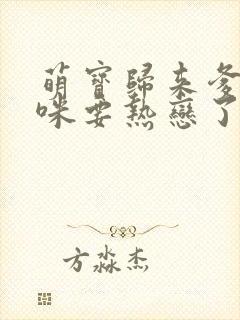 萌寶歸来爹
咪要熱戀了
方淼杰